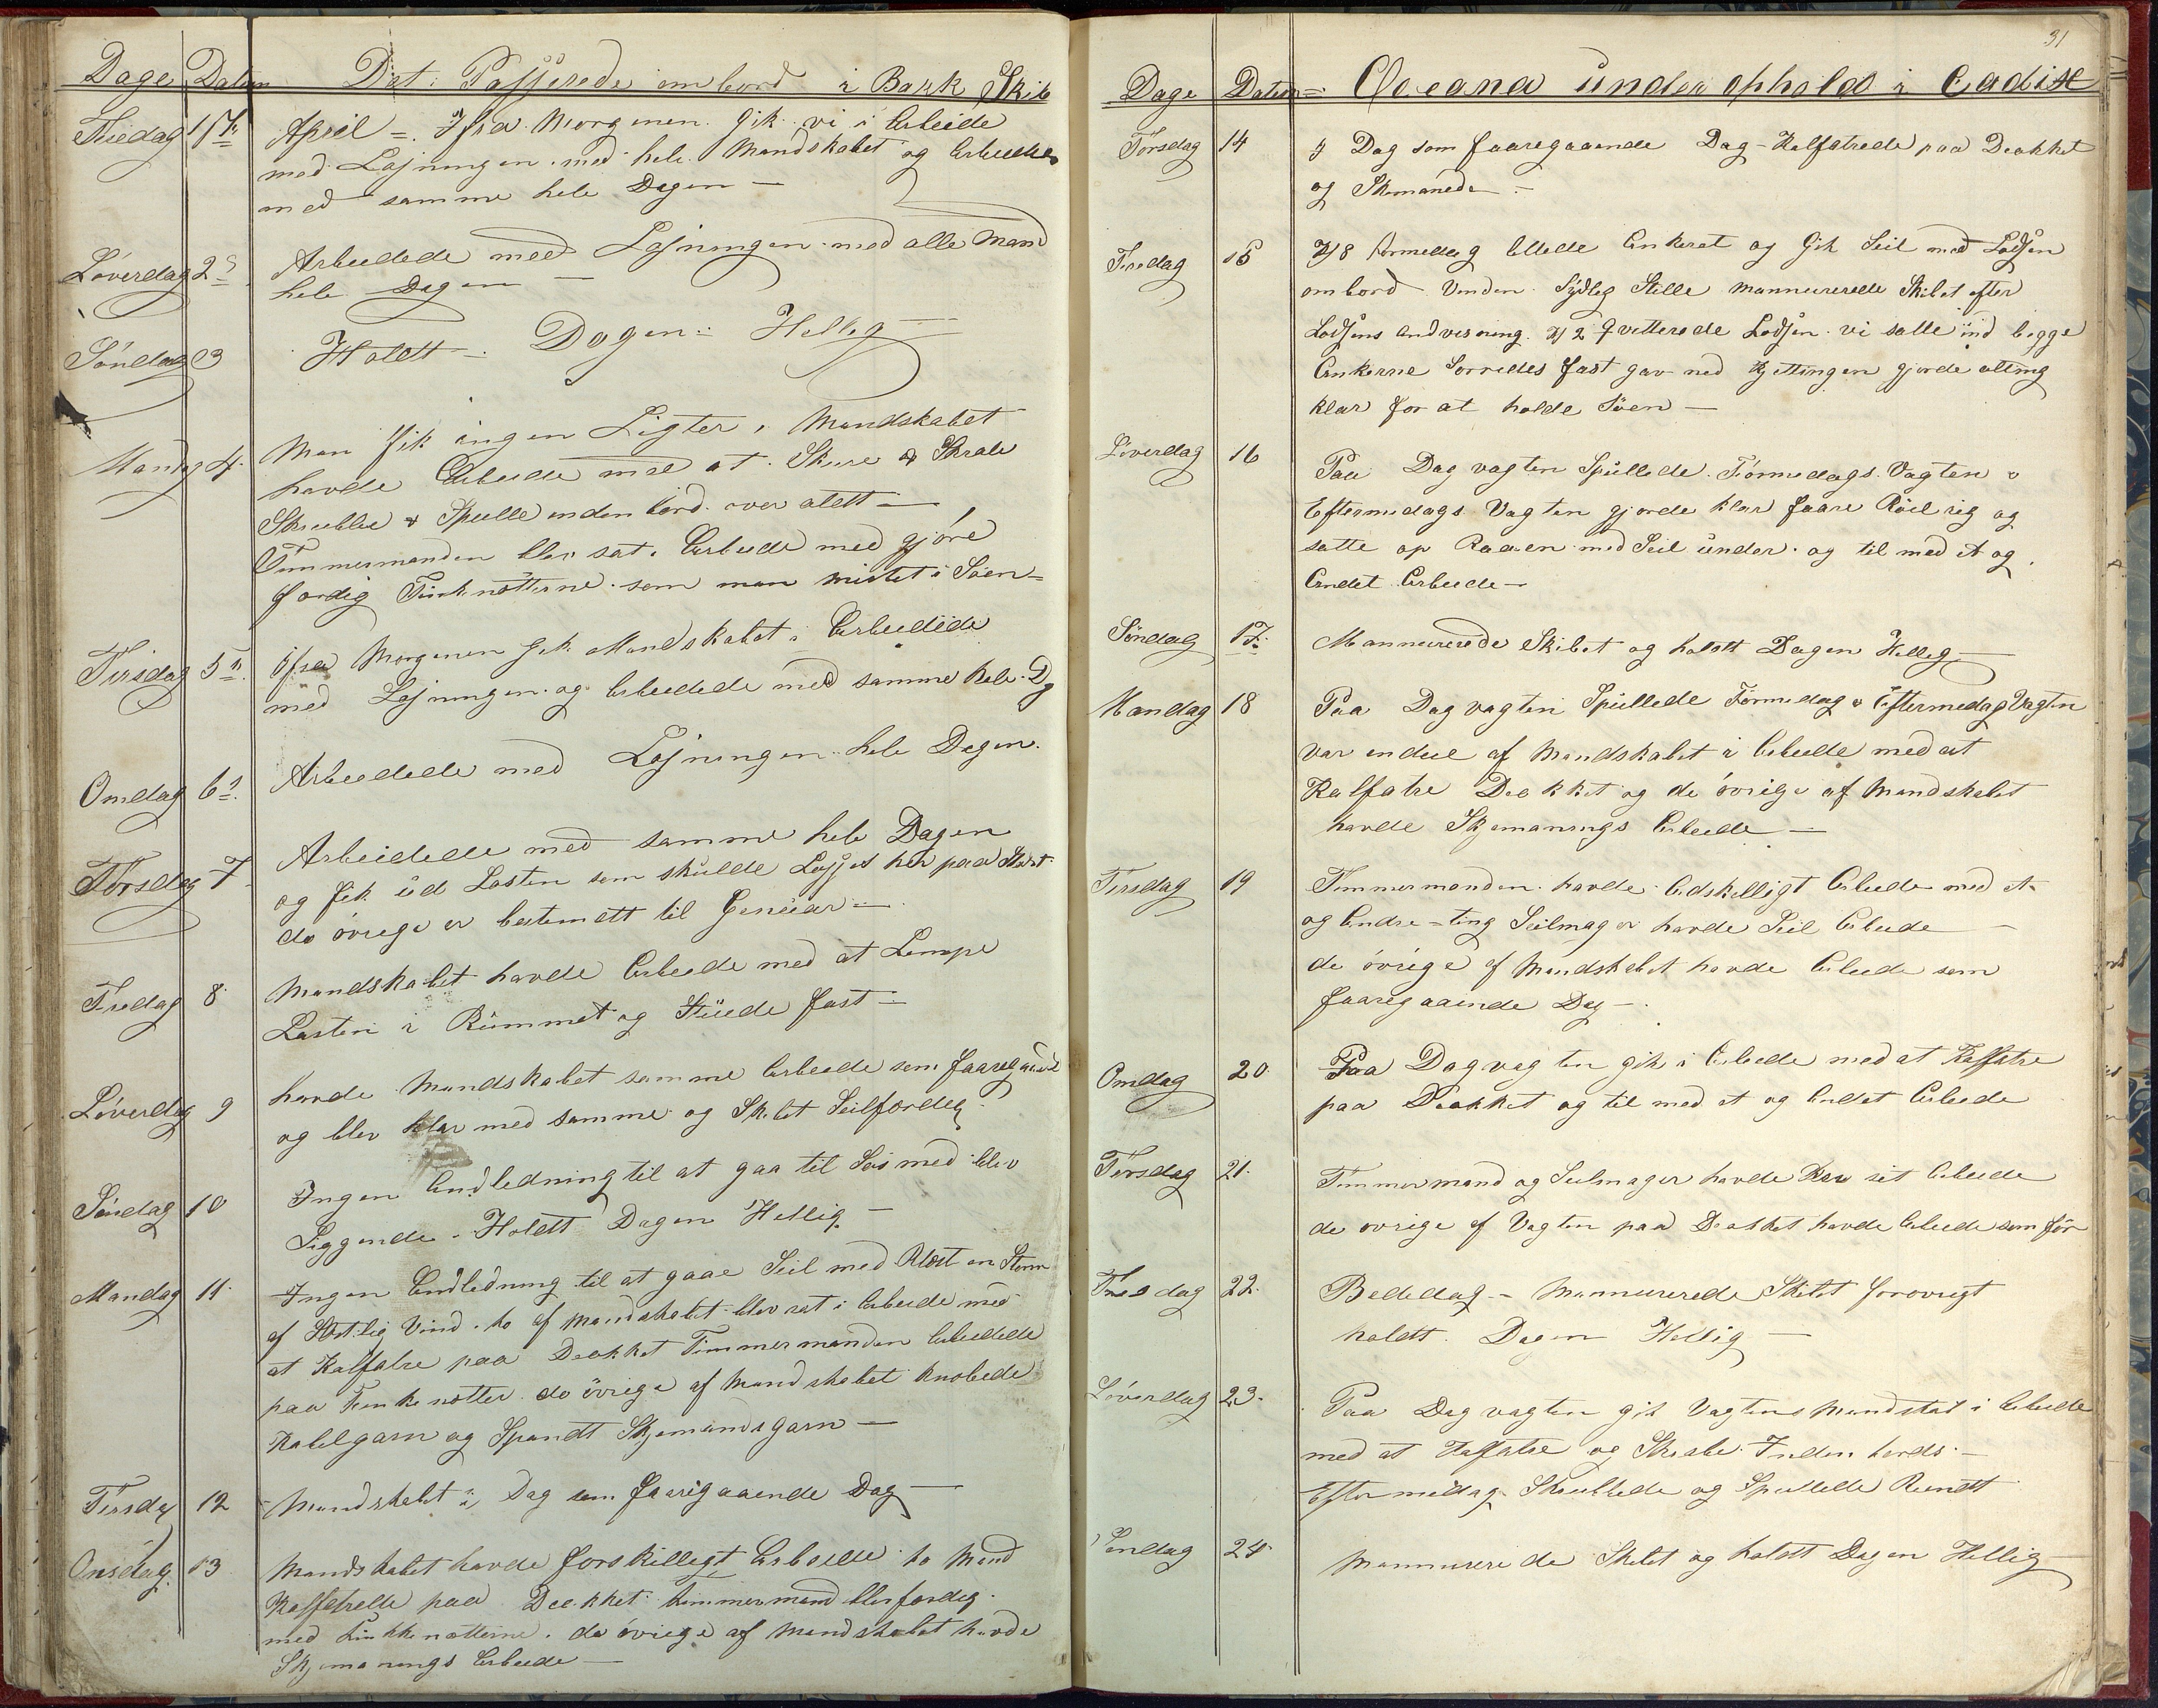 Dage Datum Det Passerede ombord i Bark Skib
Fredag 1ste April = Ifra Morgenen Gik vi i Arbeide
med Losningen med hele Mandskabet og Arbeidede
med samme hele Dagen —
Löverdag 2 Arbeidede med Losningen med alle Mand
hele Dagen —
Söndag 3 Holdt Dagen Hellig
Mandag 4 Man fik ingen Ligter, Mandskabet
havde Arbeide med at Skure & Skrabe
Skrubbe & Spulle indenbord over alett —
Tömmermanden blev sat i Arbeide med gjöre
færdig Finknötterne som man mistet i Söen =
Tirsdag 5 Ifra Morgenen gik Mandskabet i Arbeidede
med Losningen og Arbeidede med samme hele Dg
Omdag 6 Arbeidede med Losningen hele Dagen
Törsdag 7 Arbeidede med samme hele Dagen
og fik ud Lasten som skulde Losses her paa Stedet
de övrige er bestemtt til Genuar —
Fredag 8 Mandskabet havde Arbeide med at Lempe
Lasten i Rummet og Stuede fast —
Löverdag 9 havde Mandskabet samme Arbeide som faaregaaend
og blev klar med samme og Skibet Seilfærdig
Söndag 10 Ingen Andledning til at gaa til Söes med blev
Liggende. Holdt Dagen Hellig —
Mandag 11 Ingen Andledning til at gaae Seil med Blæst en Storm
af Östlig Vind. to af Mandskabet blev sat i Arbeide med
at Kalfatre paa Dækket Timmermanden Arbeidede
paa Finkenötter de övrige af Mandskabet knobede
Kabelgarn og Spandt Skjemandsgarn —
Tirsdag 12 Mandskabet i Dag som faaregaaende Dag —
Onsdag 13 Mandskabet havde forskilligt Arbeide to Mand
Kalfatrede paa Dækket timmermand blev færdig
med finkkenötterne. de övrige af Mandskabet havde
Skjemanings Arbeide —
31
Dage Datum = Oceana under ophold i Cadix
Törsdag 14 I Dag som faaregaaende Dag - Kalfatrede paa Dækket
og Skemanede —
Fredag 15 Kl 8 Formedag lettede Ankeret og Gik Seil med Lodsen
ombord Vinden Sÿdlig Stille mannurerede Skibet efter
Lodsens andvisning. Kl 2 qvitterede Lodsen. vi satte ind begge
Ankerne Sorredes fast gav ned Kjettingen gjorde alting
klar for at holde Söen —
Löverdag 16 Paa Dagvagten Spullede. Formedags Vagten &
Eftermedags Vagten gjorde klar faare Röil rig og
satte op Raaen med Seil under og til med et og
Andet Arbeide —
Söndag 17 Mannurerede Skibet og holdt Dagen Hellig —
Mandag 18 Paa Dagvagten Spullede Formedag & Eftermedag Vagten
var endeel af Mandskabet i Arbeide med at
Kalfatre Dækket og de övrige af Mandskabet
havde Skjemanings Arbeide —
Tirsdag 19 Timmermanden havde Adskilligt Arbeide med et
og Andre =ting Seilmager havde Seil Arbeide —
de övrige af Mandskabet havde Arbeide som
faaregaaende Dag —
Omdag 20 Paa Dagvagten gik i Arbeide med at Kalfatre
paa Dækket og til med et og Andet Arbeide
Torsdag 21 Timmermand og Seilmager havde sit Arbeide
de övrige af Vagten paa Dækket havde Arbeide som för
Fredag 22 Bededag - Mannurerede Skibet forövrigt
holdt Dagen Hellig —
Löverdag 23 Paa Dagvagten gik Vagtens Mandskab i Arbeide
med at Kalfatre og Skrabe Inden bords —
Eftermedag Skrubbede og Spullede Rundt
Söndag 24 Mannurerede Skibet og holdt Dagen Hellig